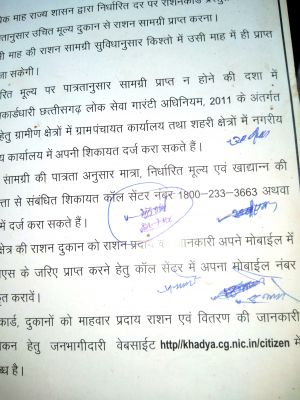 माह राज्य शासन द्वारा निर्धारित दर पर राशनकार्ड
तानुसार उचित मूल्य दुकान से राशन सामग्री प्राप्त करना।
माह की राशन सामग्री सुविधानुसार किश्तो में उसी माह में ही प्राप्त
सकेगी।
रित मूल्य पर पात्रतानुसार सामग्री प्राप्त न होने की दशा में
कार्डधारी छत्तीसगढ़ लोक सेवा गारंटी अधिनियम, 2011 के अंतर्गत
हेतु ग्रामीण क्षेत्रों में ग्रामपंचायत कार्यालय तथा शहरी क्षेत्रों में नगरीय
कार्यालय में अपनी शिकायत दर्ज करा सकते हैं।
सामग्री की पात्रता अनुसार मात्रा, निर्धारित मूल्य एवं खाद्यान्न की
त्ता से संबंधित शिकायत कॉल सेंटर नंबर 1800-233-3663 अथवा
में दर्ज करा सकते हैं।
क्षेत्र की राशन दुकान को राशन प्रदाय जानकारी अपने मोबाईल में
एस के जरिए प्राप्त करने हेतु कॉल सेंटर में अपना मोबाईल नंबर
करावें।
कार्ड, दुकानों को माहवार प्रदाय राशन एवं वितरण की जानकारी
कन हेतु जनभागीदारी वेबसाईट http//khadya.cg.nic.in/citizen में
ब्ध है।